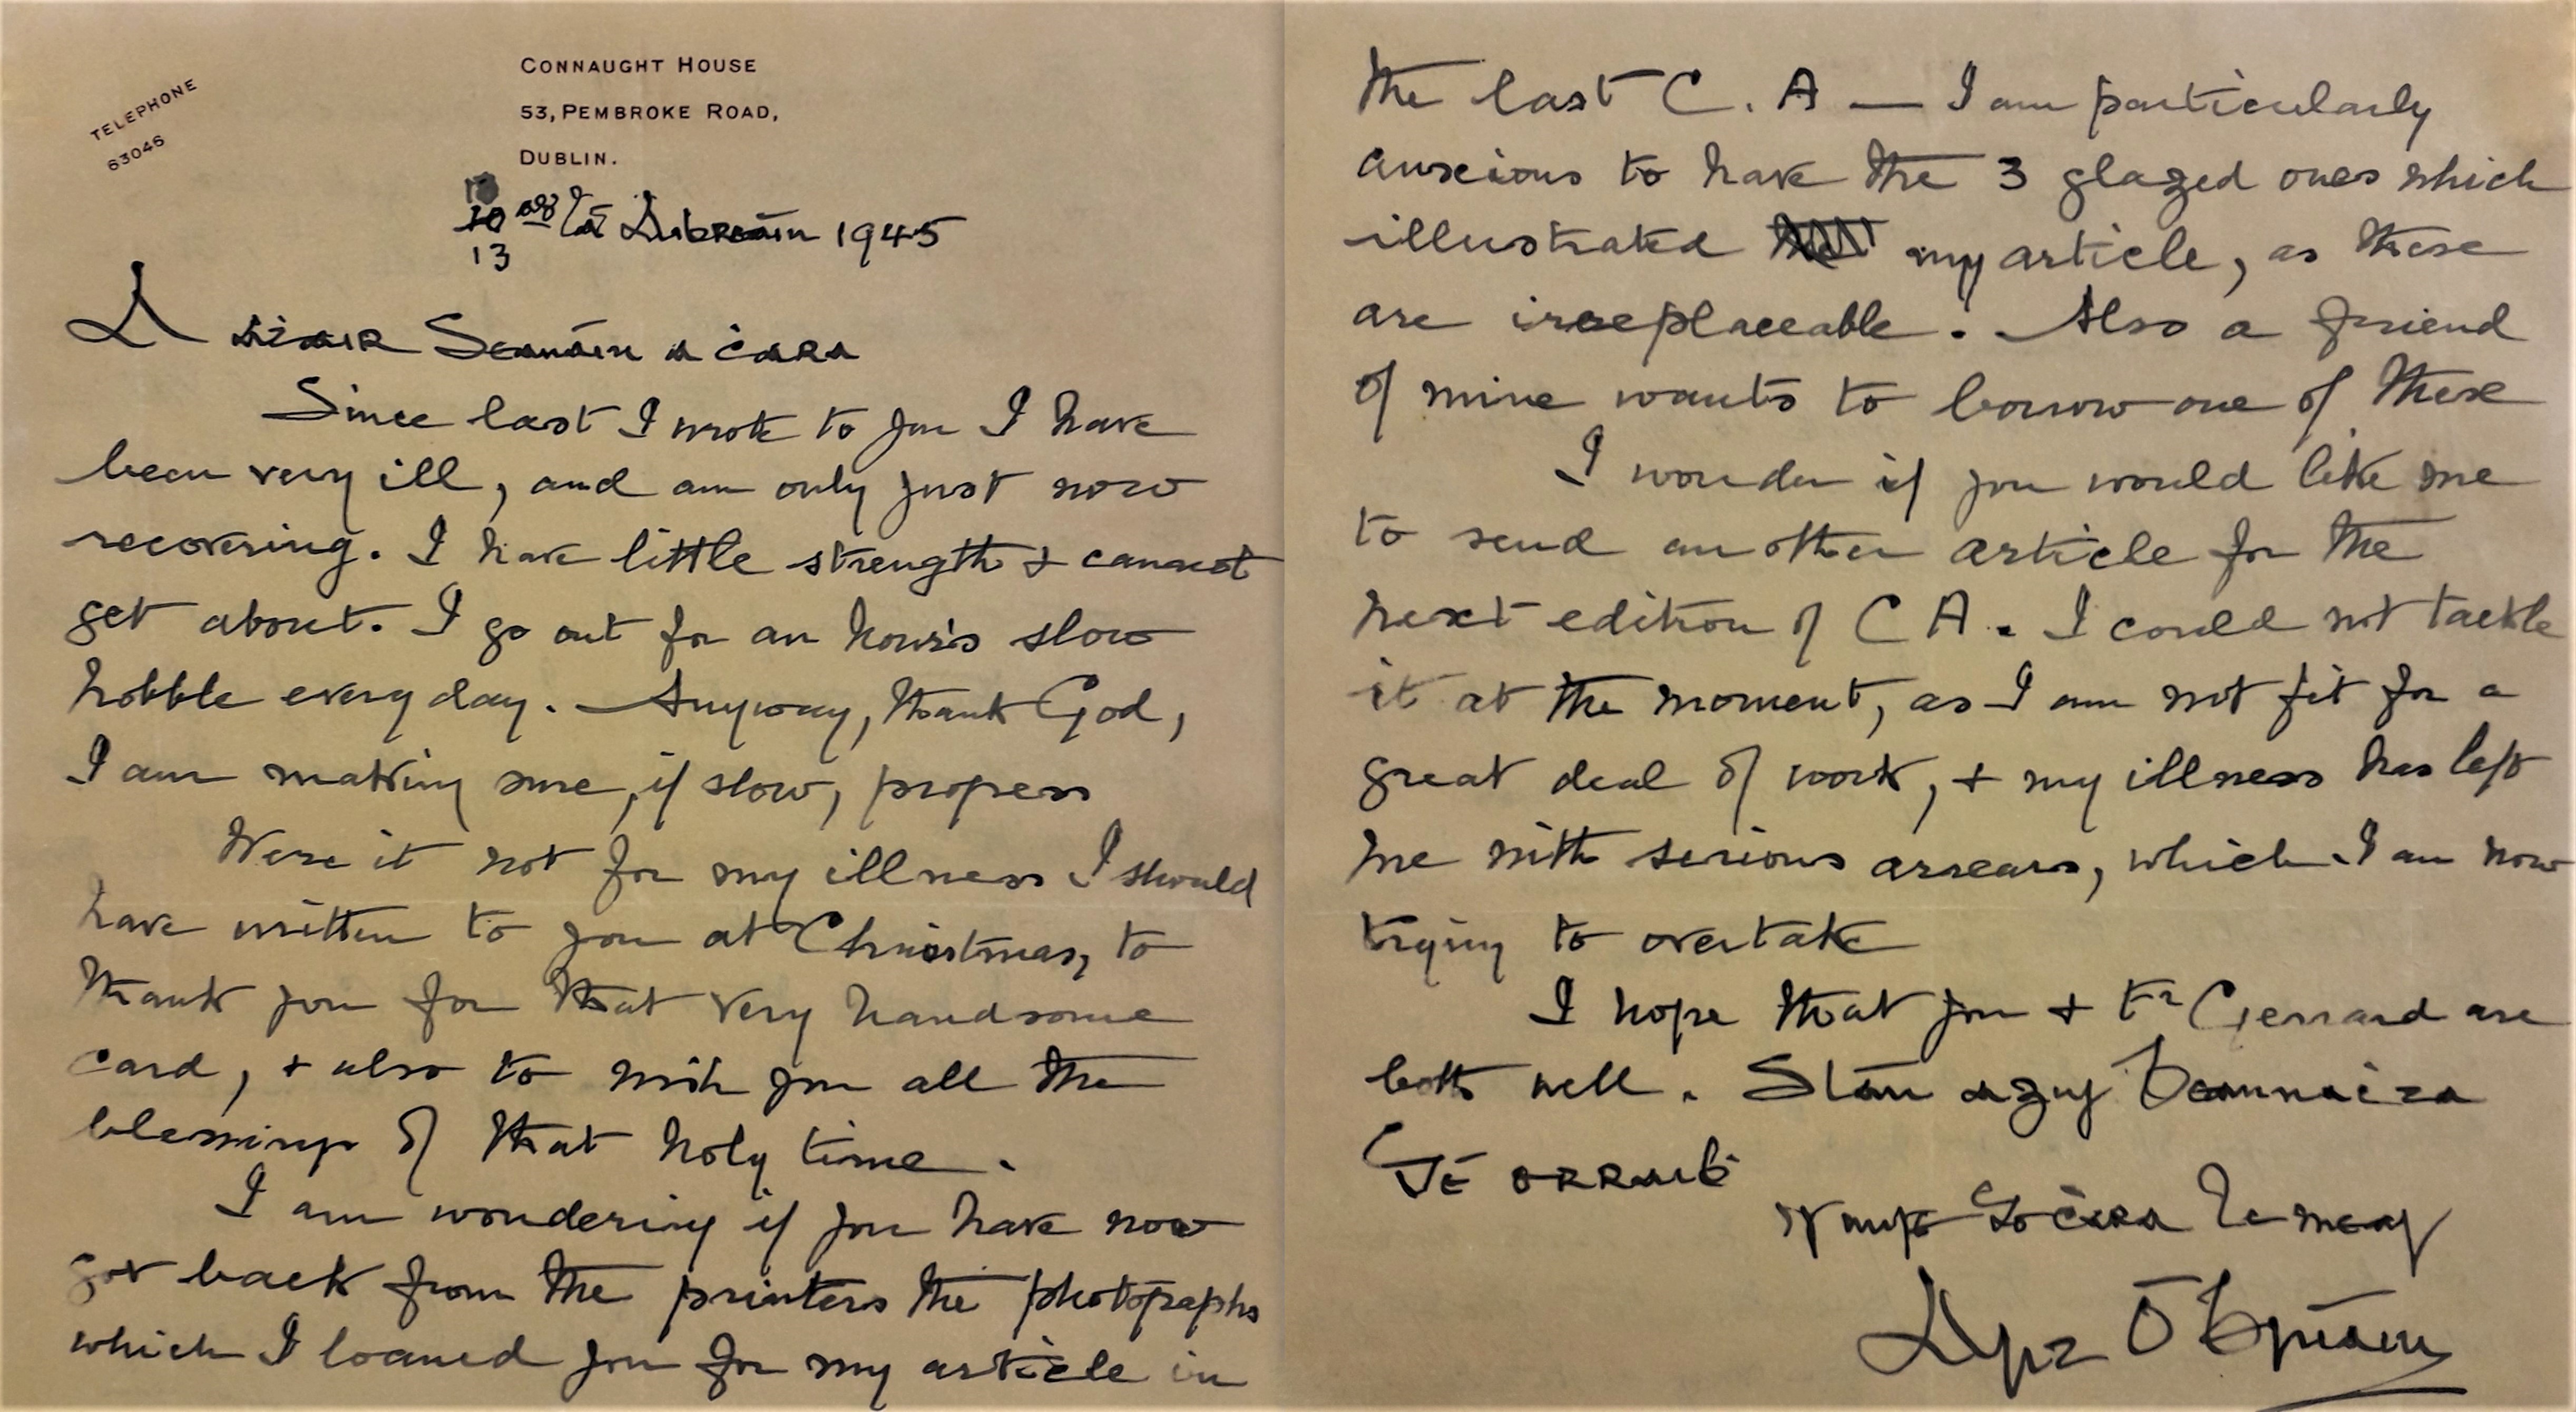 TELEPHONE
63046
CONNAUGHT HOUSE
53, PEMBROKE ROAD,
DUBLIN.
10 lá Aibreáin 1945
13
A Seaáin a ċara
Since last I wrote to you I have
been very ill, and am only just now
recovering. I have little strength & cannot
get about. I go out for an hour's slow
hobble every day. Anyway, thank God,
I am making sure, if slow, progress
Were it not for my illness I should
have written to you at Christmas, to
thank you for that very handsome
card, & also to wish you all the
blessings of that holy time.
I am wondering if you have now
got back from the printers the photographs
which I loaned you for my article in
the last C. A — I am particularly
anxious to have the 3 glazed ones which
illustrated my article, as these
are irreplaceable. Also a friend
of mine wants to borrow one of these
I wonder if you would like me
to send another article for the
next edition of C A. I could not tackle
it at the moment, as I am not fit for a
great deal of work, & my illness has left
me with serious arrears, which I am now
trying to overtake
I hope that you & Fr Gerrard are
both well. Slán agus beannaċt
Dé orraiḃ
do ċara le meas
Art Ó Briain